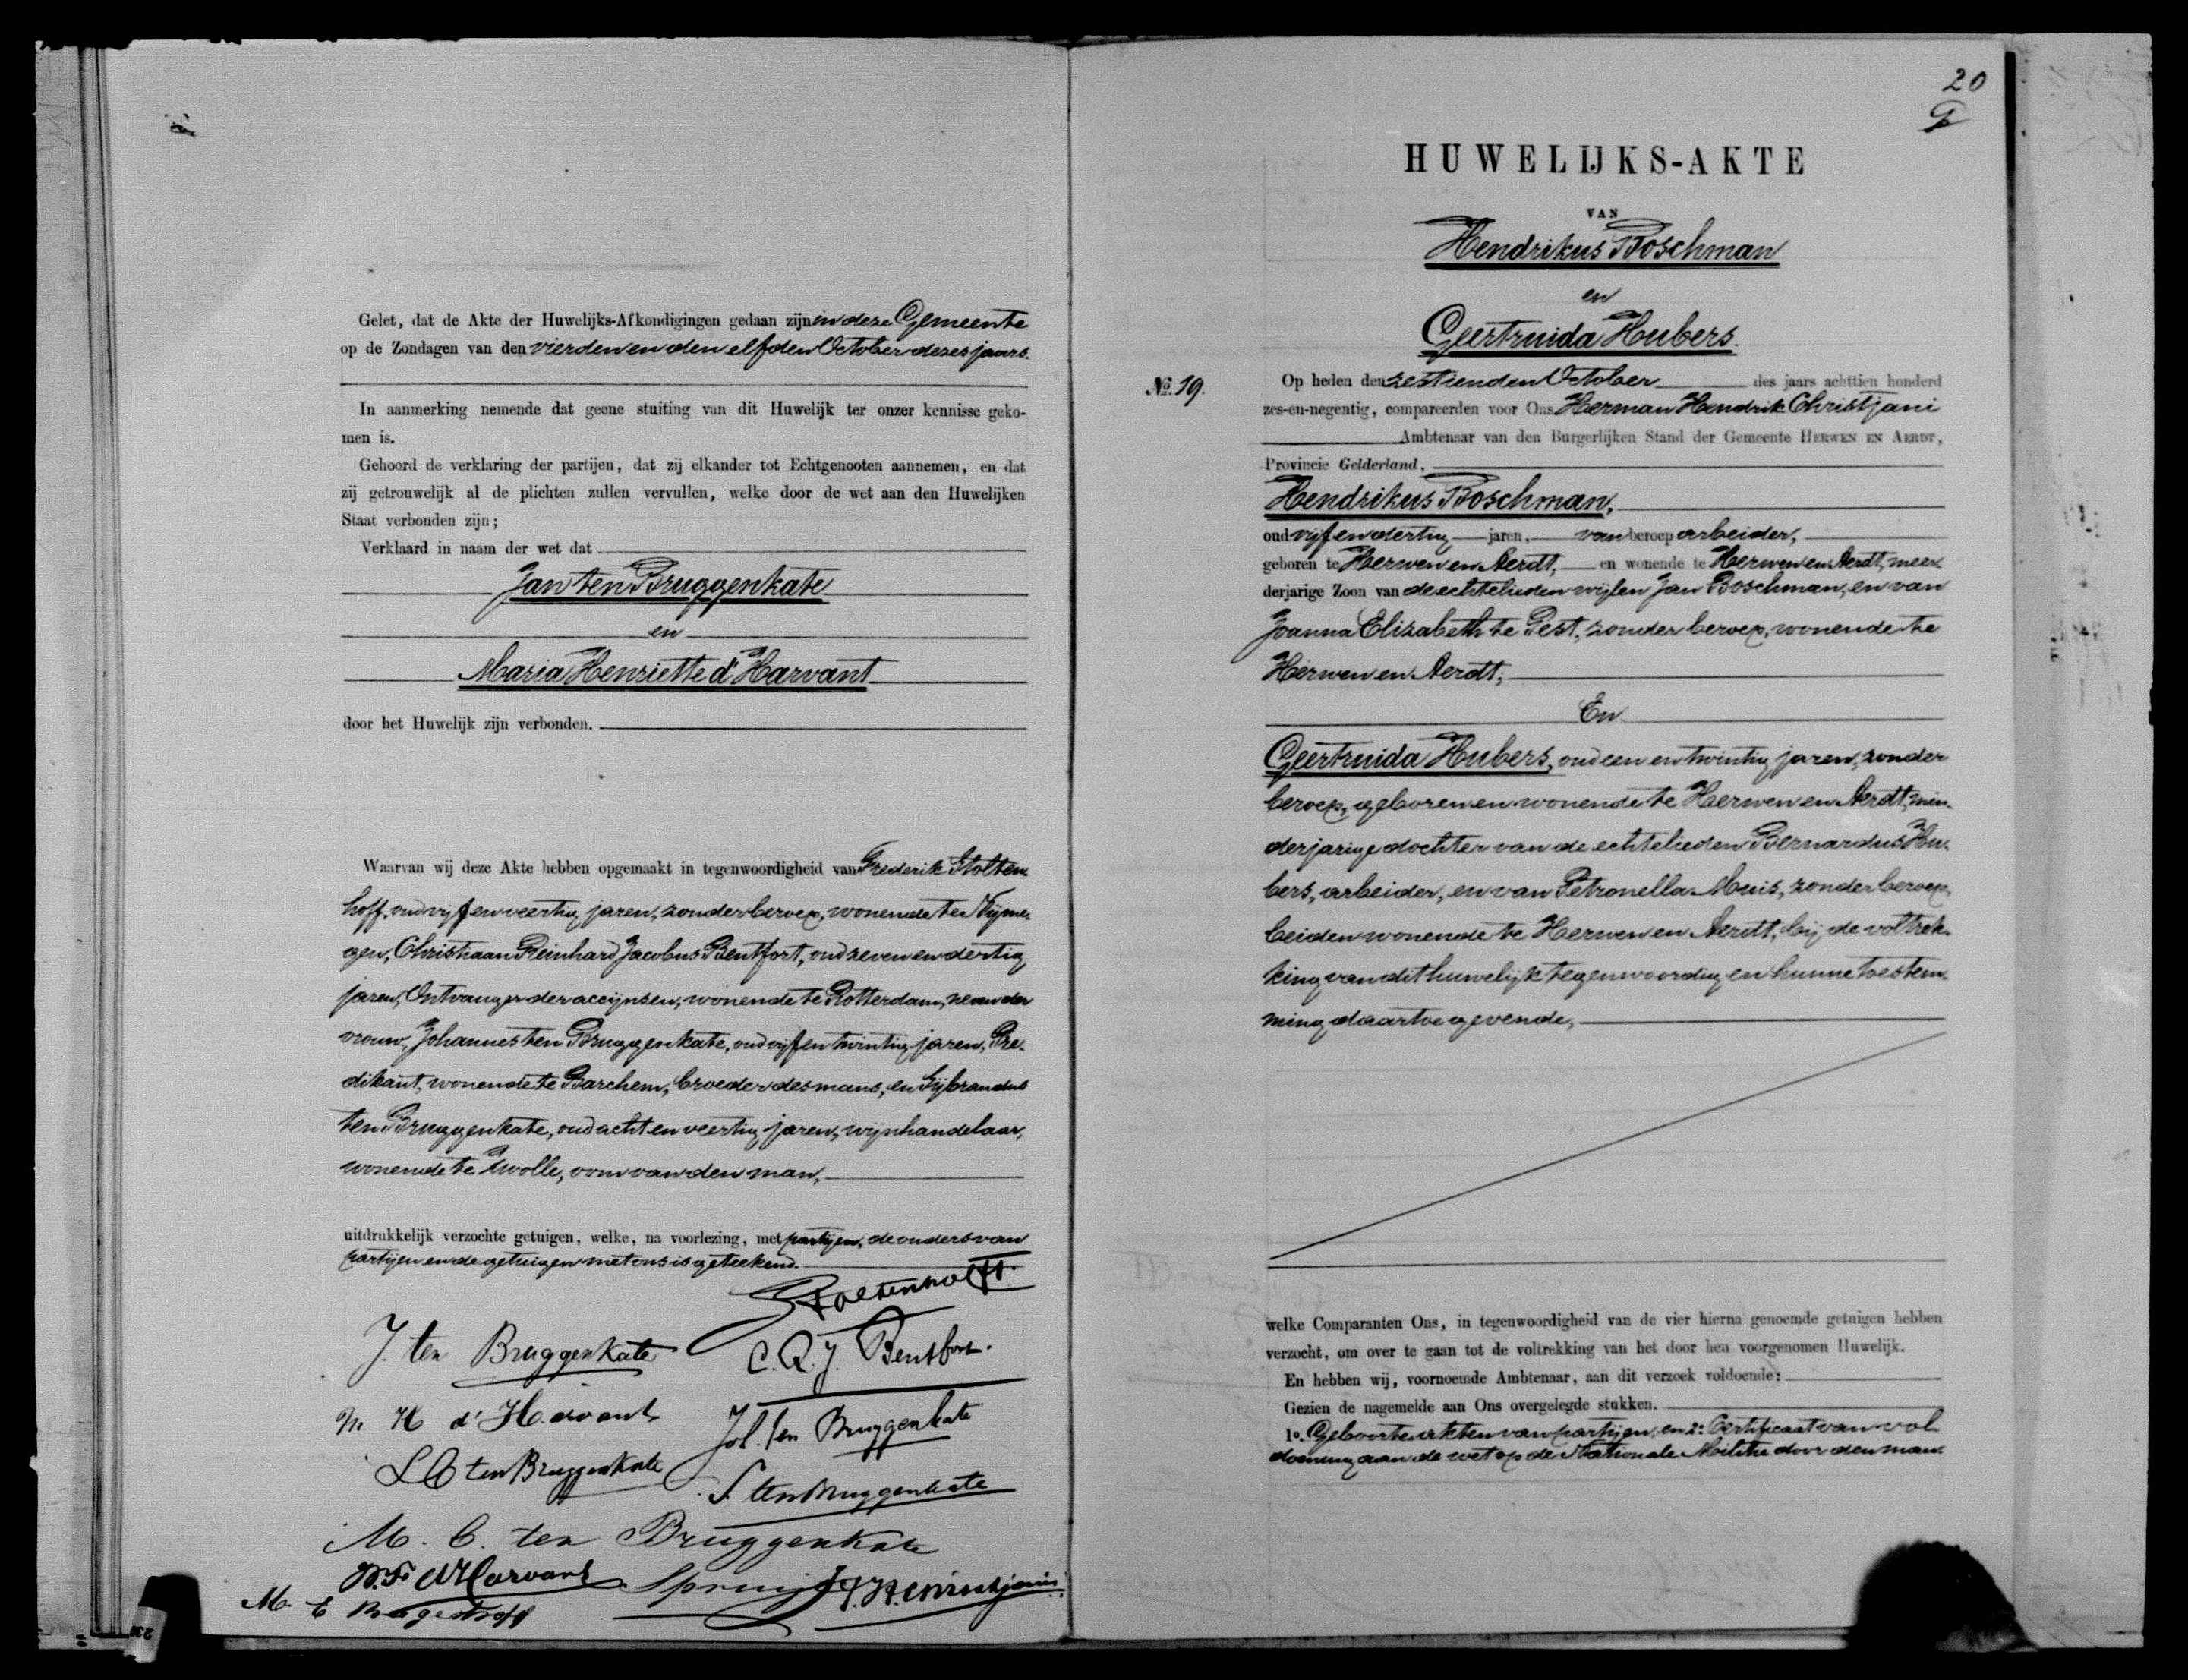 Gelet, dat de Akte der Huwelijks-Afkondigingen gedaan zijn in deze Gemeente
op de Zondagen van den vierden en den elfden October dezes jaars.
In aanmerking nemende dat geene stuiting van dit Huwelijk ter onzer kennisse geko-
men is.
Gehoord de verklaring der partijen, dat zij elkander tot Echtgenooten aannemen, en dat
zij getrouwelijk al de plichten zullen vervullen, welke door de wet aan den Huwelijken
Staat verbonden zijn;
Verklaard in naam der wet dat
Jan ten Bruggenkate
en
Maria Henriette d'Harvant
door het Huwelijk zijn verbonden.
Waarvan wij deze Akte hebben opgemaakt in tegenwoordigheid van Frederik Stolten-
hoff, oud vijf en veertig jaren, zonder beroep, wonende te Nijme-
gen, Christiaan Reinhard Jacobus Bentfort, oud zeven en dertig
jaren, Ontvanger der accijnsen, wonende te Rotterdam, neven der
vrouw, Johannes ten Bruggenkate, oud vijf en twintig jaren, Pre-
dikant, wonende te Barchem, broeder des mans, en Sijbrandus
ten Bruggenkate, oud acht en veertig jaren, wijnhandelaar,
wonende te Zwolle, oom van den man,
uitdrukkelijk verzochte getuigen, welke, na voorlezing, met partijen, de ouders van
partijen en de getuigen met ons is geteekend.
Stoltenhoff.
J. ten Bruggenkate
C. R. J. Bentfort.
M H d'Harvant
Joh. ten Bruggenkate
L C ten Bruggenkate
S. ten Bruggenkate
M. C. ten Bruggenkate
d'Harvant
H.H. Christjani
M. E
20
HUWELIJKS-AKTE
VAN
Hendrikus Boschman
en
Geertruida Hubers.
No. 19.
Op heden den zestienden October des jaars achttien honderd
zes-en-negentig, compareerden voor Ons Herman Hendrik Christjani
Ambtenaar van den Burgerlijken Stand der Gemeente HERWEN EN AERDT,
Provincie Gelderland,
Hendrikus Boschman,
oud vijf en dertig jaren, van beroep arbeider,
geboren te Herwen en Aerdt, en wonende te Herwen en Aerdt, meer-
derjarige Zoon van de echtelieden wijlen Jan Boschman, en van
Joanna Elizabeth te Pest, zonder beroep, wonende te
Herwen en Aerdt;
En
Geertruida Hubers, oud een en twintig jaren, zonder
beroep, geboren en wonende te Herwen en Aerdt, min-
derjarige dochter van de echtelieden Bernardus Hu-
bers, arbeider, en van Petronella Muis, zonder beroep,
beiden wonende te Herwen en Aerdt, bij de voltrek-
king van dit huwelijk tegenwoordig en hunne toestem-
ming daartoe gevende,
welke Comparanten Ons, in tegenwoordigheid van de vier hierna genoemde getuigen hebben
verzocht, om over te gaan tot de voltrekking van het door hen voorgenomen Huwelijk.
En hebben wij, voornoemde Ambtenaar, aan dit verzoek voldoende:
Gezien de nagemelde aan Ons overgelegde stukken.
1o. Geboorteakten van partijen, en 2o Certificaat van vol-
doening aan de wet op de Nationale Militie door den man.